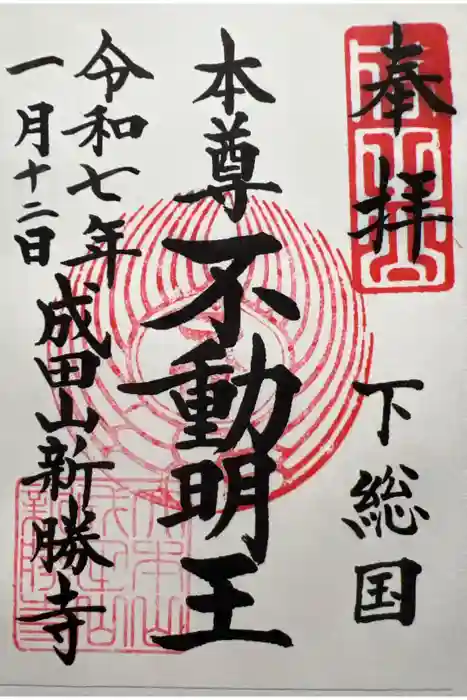 奉拝
下総国
本尊不動明王
令和七年
一月十二日
成田山新勝寺
成田山